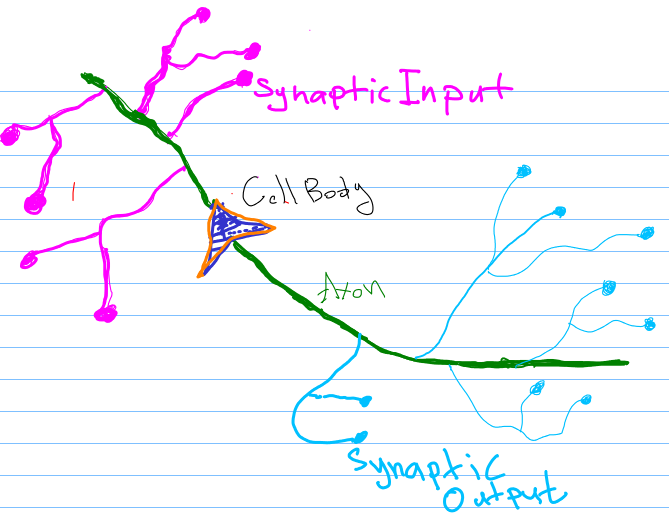 Synaptic Input
Cell Body
Axon
Synaptic
Output